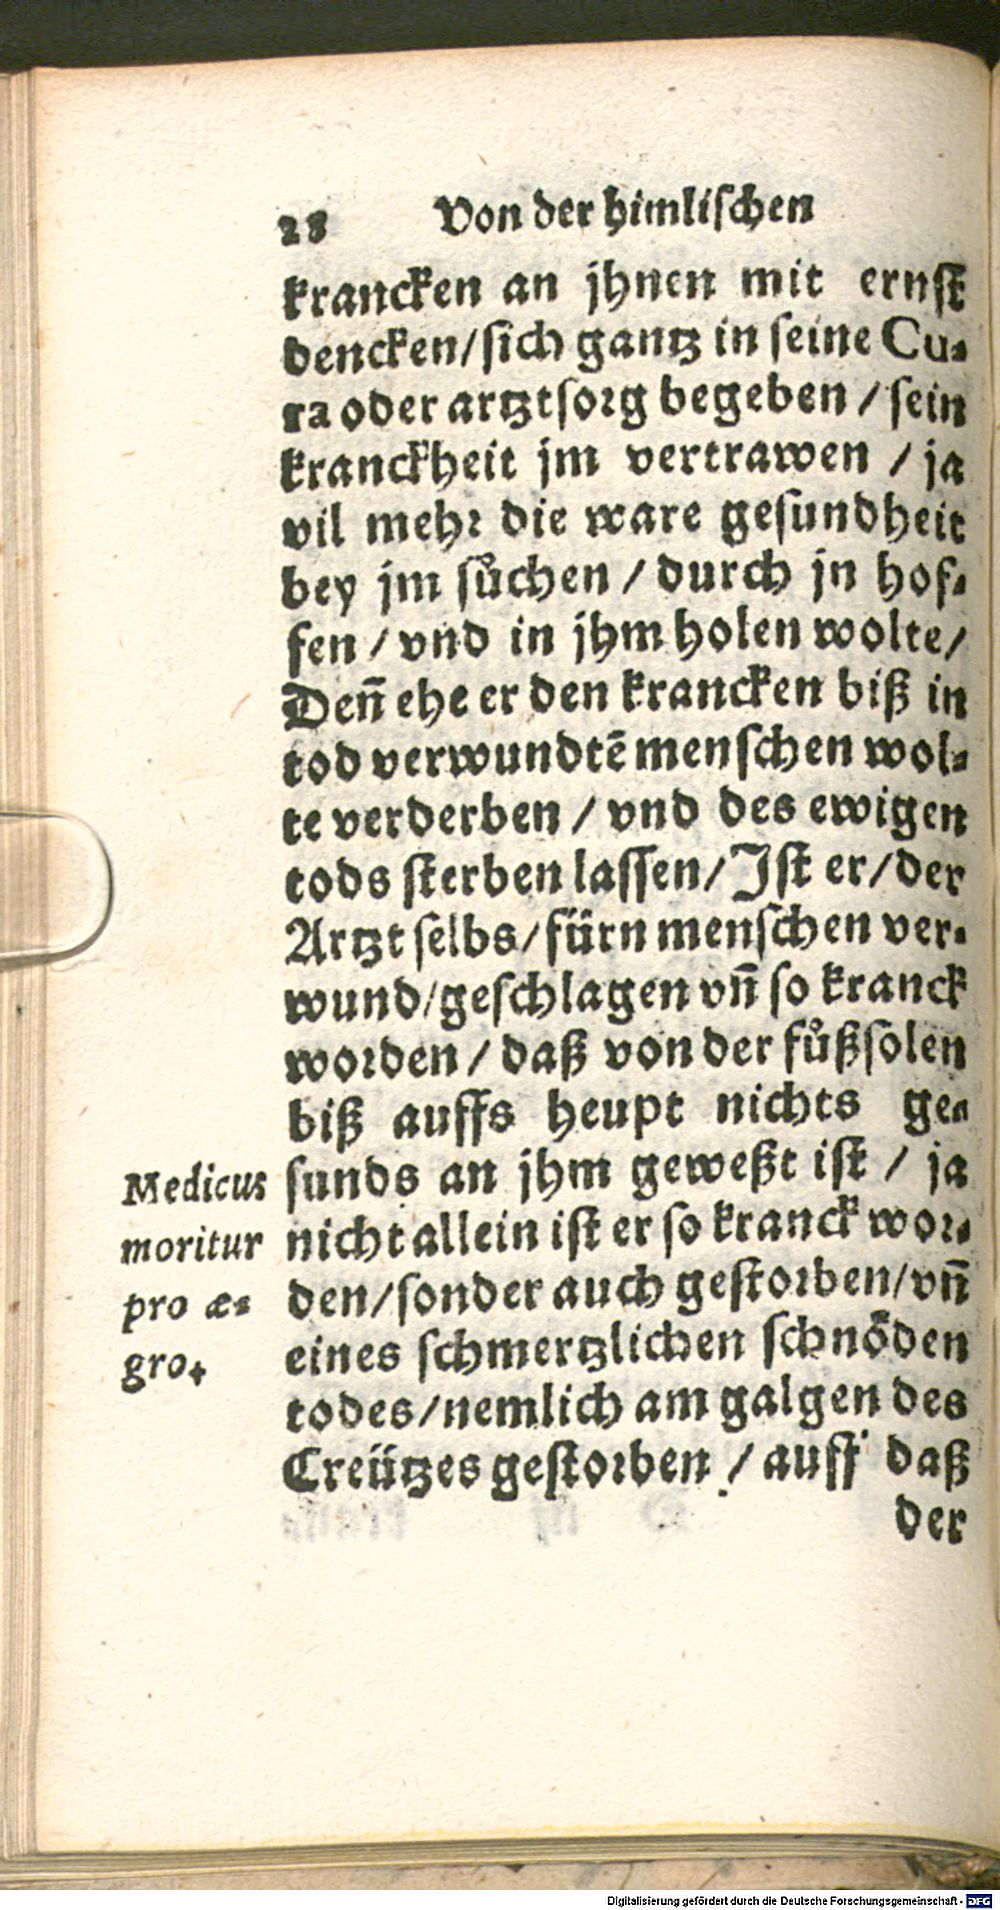 28 Von der himliſchen
krancken an jhnen mit ernſt
dencken/ſich gantz in ſeine Cu⸗
ra oder artztſorg begeben / ſein
kranckheit jm vertrawen / ja
vil mehr die ware geſundheit
bey jm ſuͦchen / durch jn hof⸗
fen / vnd in jhm holen wolte/
Deñ ehe er den krancken biß in
tod verwundtē menſchen wol⸗
te verderben / vnd des ewigen
tods ſterben laſſen/Iſt er/der
Artzt ſelbs/fürn menſchen ver⸗
wund/geſchlagen vñ ſo kranck
worden / daß von der fuͦßſolen
biß auffs heupt nichts ge⸗
ſunds an jhm geweßt iſt / ja
nicht allein iſt er ſo kranck wor⸗
den/ſonder auch geſtorben/vñ
eines ſchmertzlichen ſchnöden
todes/nemlich am galgen des
Creützes geſtorben / auff daß
der
Medicus
moritur
pro æ⸗
gro.
Digitalisierung gefördert durch die Deutsche Forschungsgemeinschaft - DFG